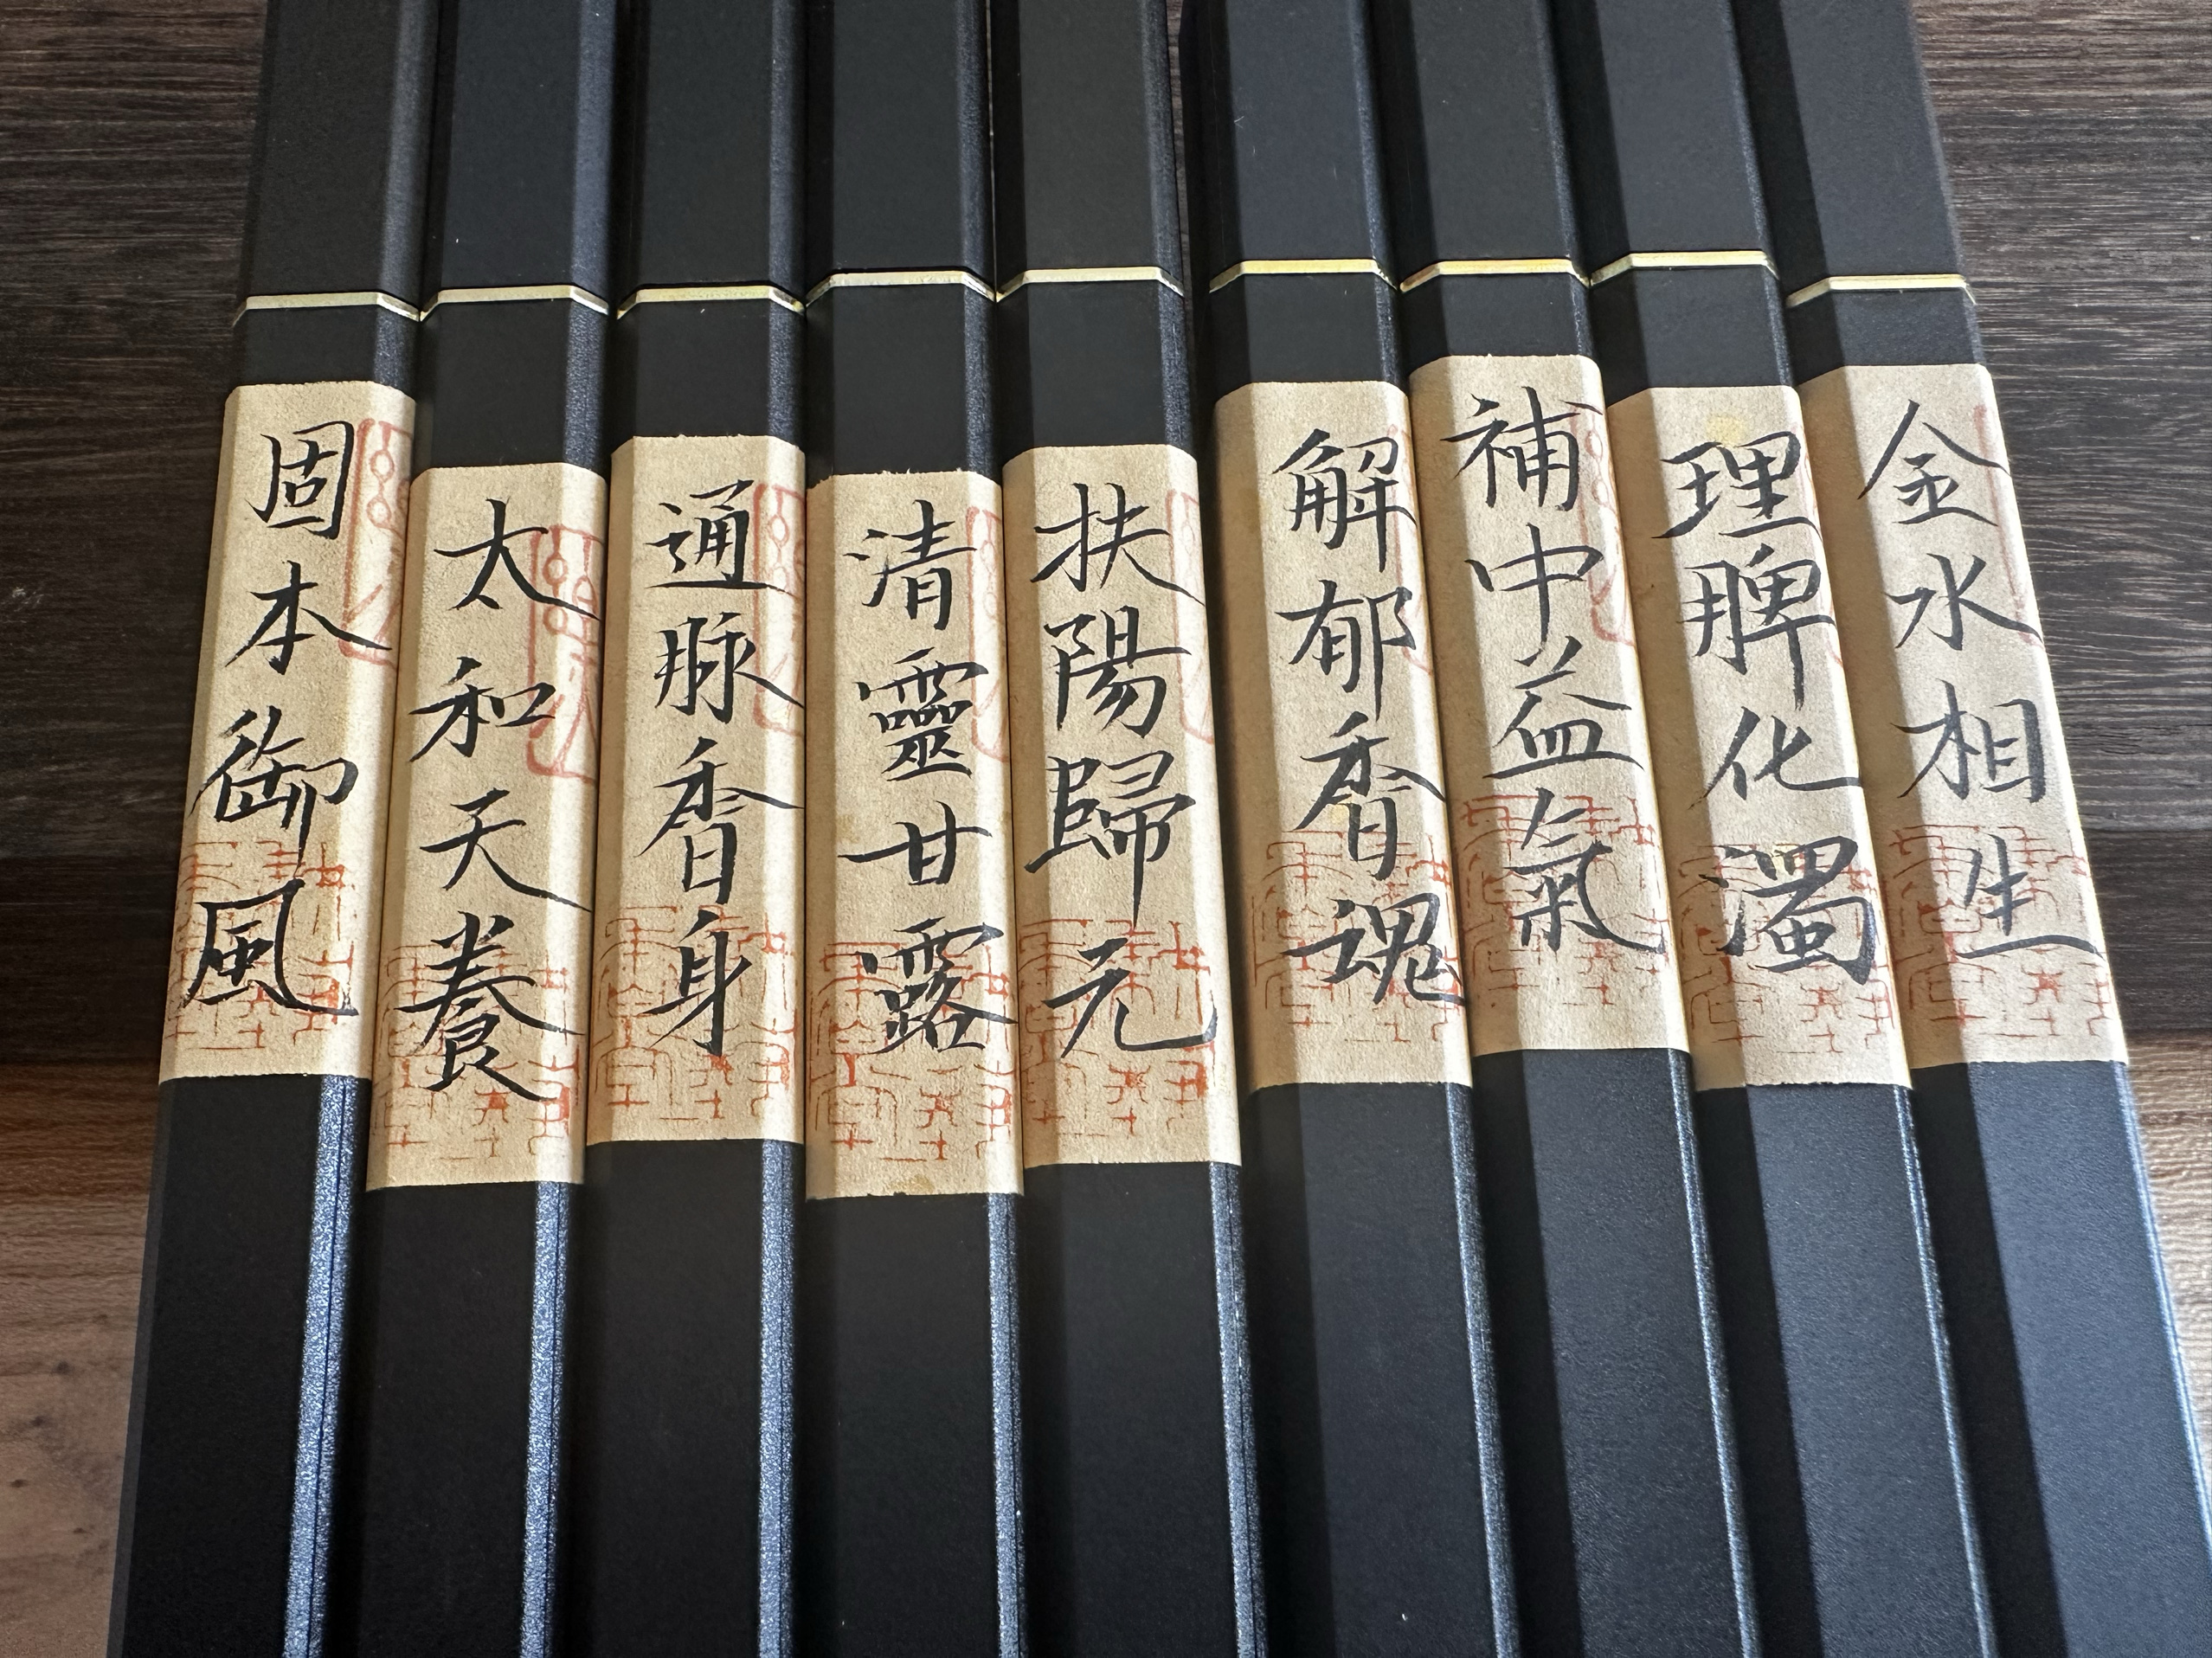 固本御風
太和天養
通脉香身
清靈甘露
扶陽歸元
解郁香魂
補中益氣
理脾化濁
金水相生